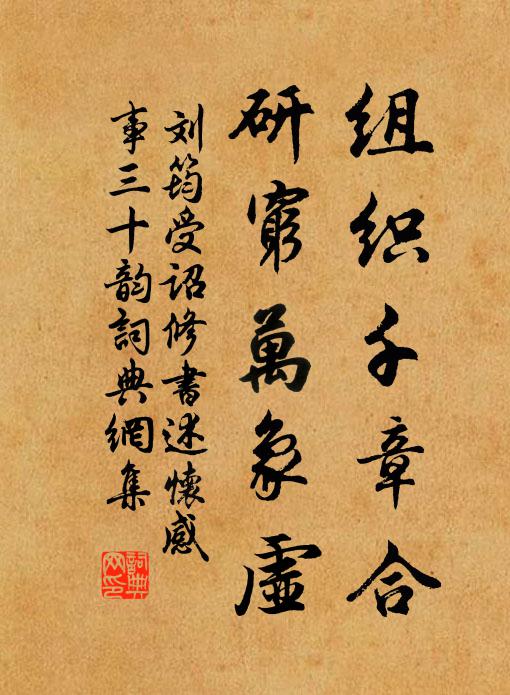 组织千章合
研窮萬象虛
刘筠受诏修書述懷感
事三十韵詞典網集
詞典
网印